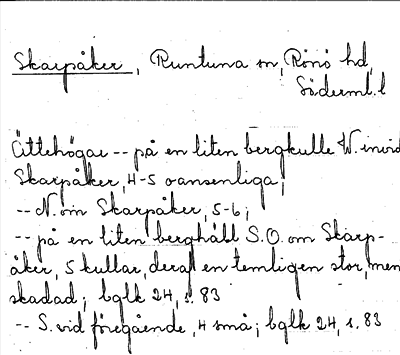 Skarpåker, Runtuna sn, Rönö hd,
Söderml. l
Ättehögar -- på en liten bergkulle W. invid
Skarpåker, 4-5 oansenliga;
-- N. om Skarpåker, 5-6;
-- på en liten berghäll S.O. om Skarp-
åker, 5 kullar, deraf en temligen stor, men
skadad; bglk 24, s. 83
-- S. vid föregående, 4 små; bglk 24, s. 83